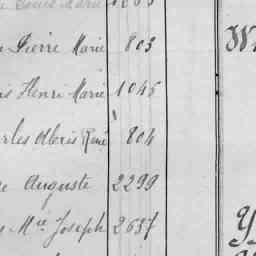 Louis Marie
Pierre Marie 803
Henri Marie 1045
Alexis René 804
Auguste 2299
Mie Joseph 2637